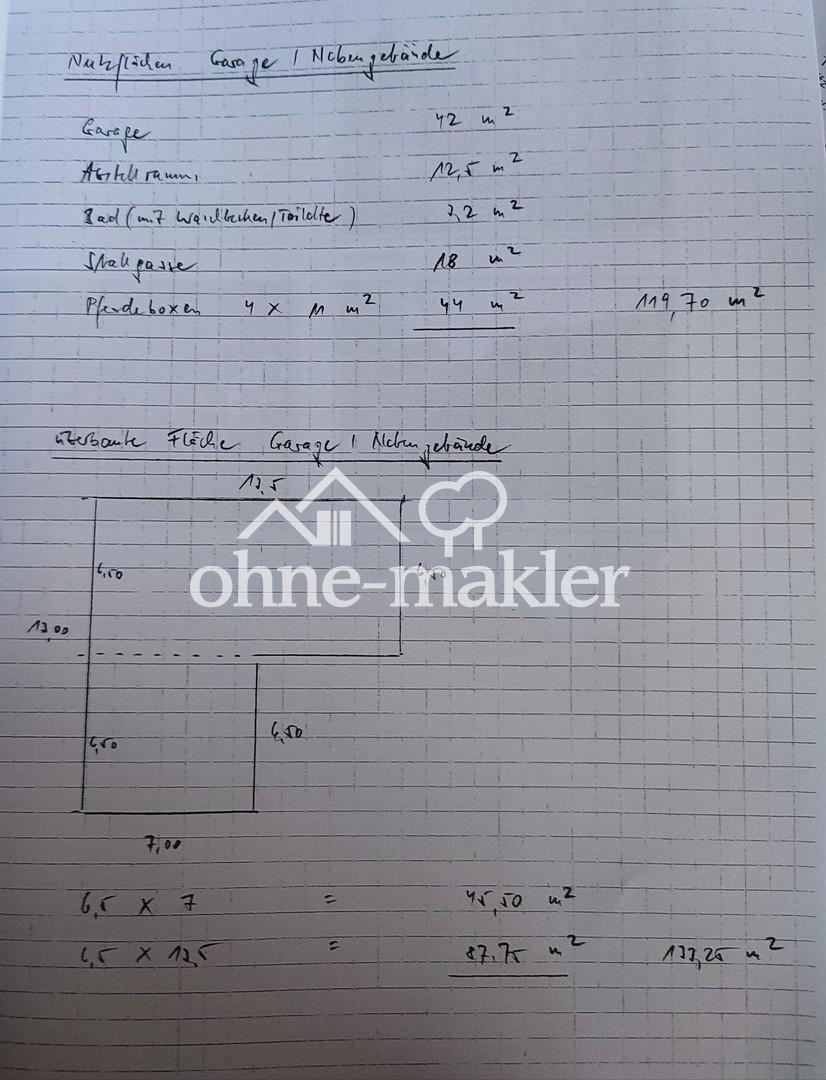 Nutzflächen Garage / Nebengebäude
Garage 42 m²
Abstellraum 12,5 m²
Bad (mit Waschbecken/Toilette) 3,2 m²
Stallgasse 18 m²
Pferdeboxen 4 x 11 m² 44 m² 119,70 m²
überbaute Fläche Garage / Nebengebäude
13,5
6,50 6,50
ohne-makler
13,00
6,50 6,50
7,00
6,5 x 7 = 45,50 m²
6,5 x 13,5 = 87,75 m² 133,25 m²